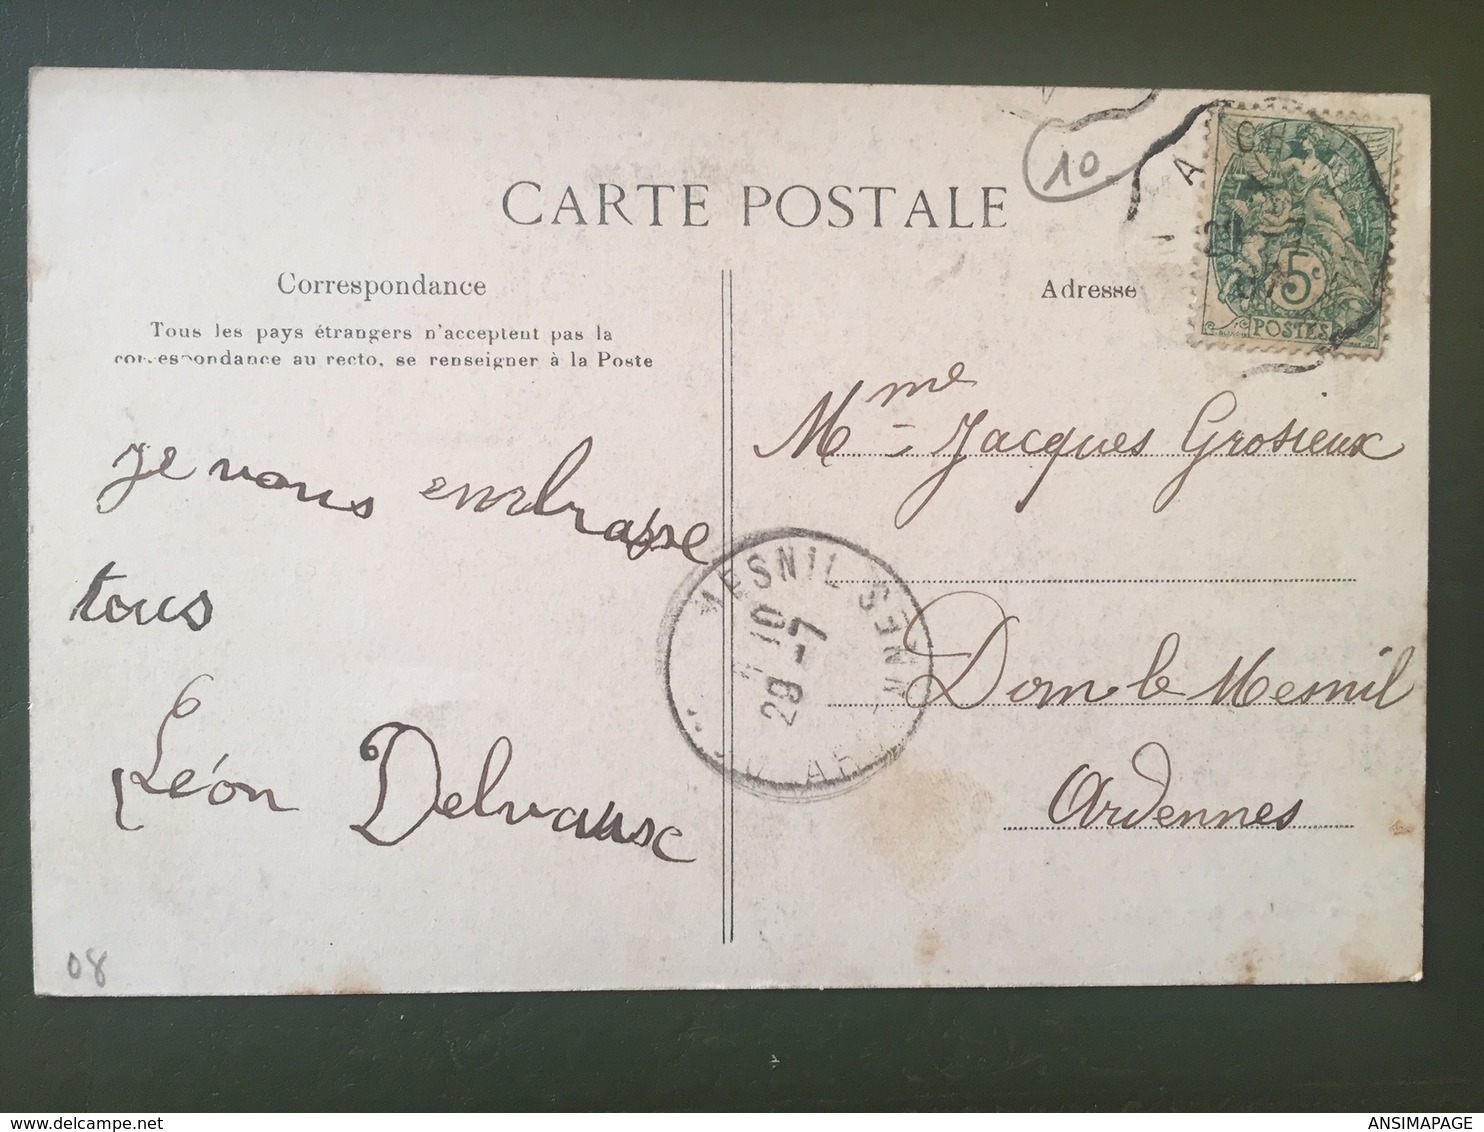 CARTE POSTALE
10
A CH
07
5c
POSTES
Correspondance
Tous les pays étrangers n'acceptent pas la
correspondance au recto, se renseigner à la Poste
Adresse
Je vous embrasse
tous
Léon Delvause
Mme Jacques Grosieux
Dom le Mesnil
Ardennes
MESNIL
10
29 - 7
08
ANSIMAPAGE